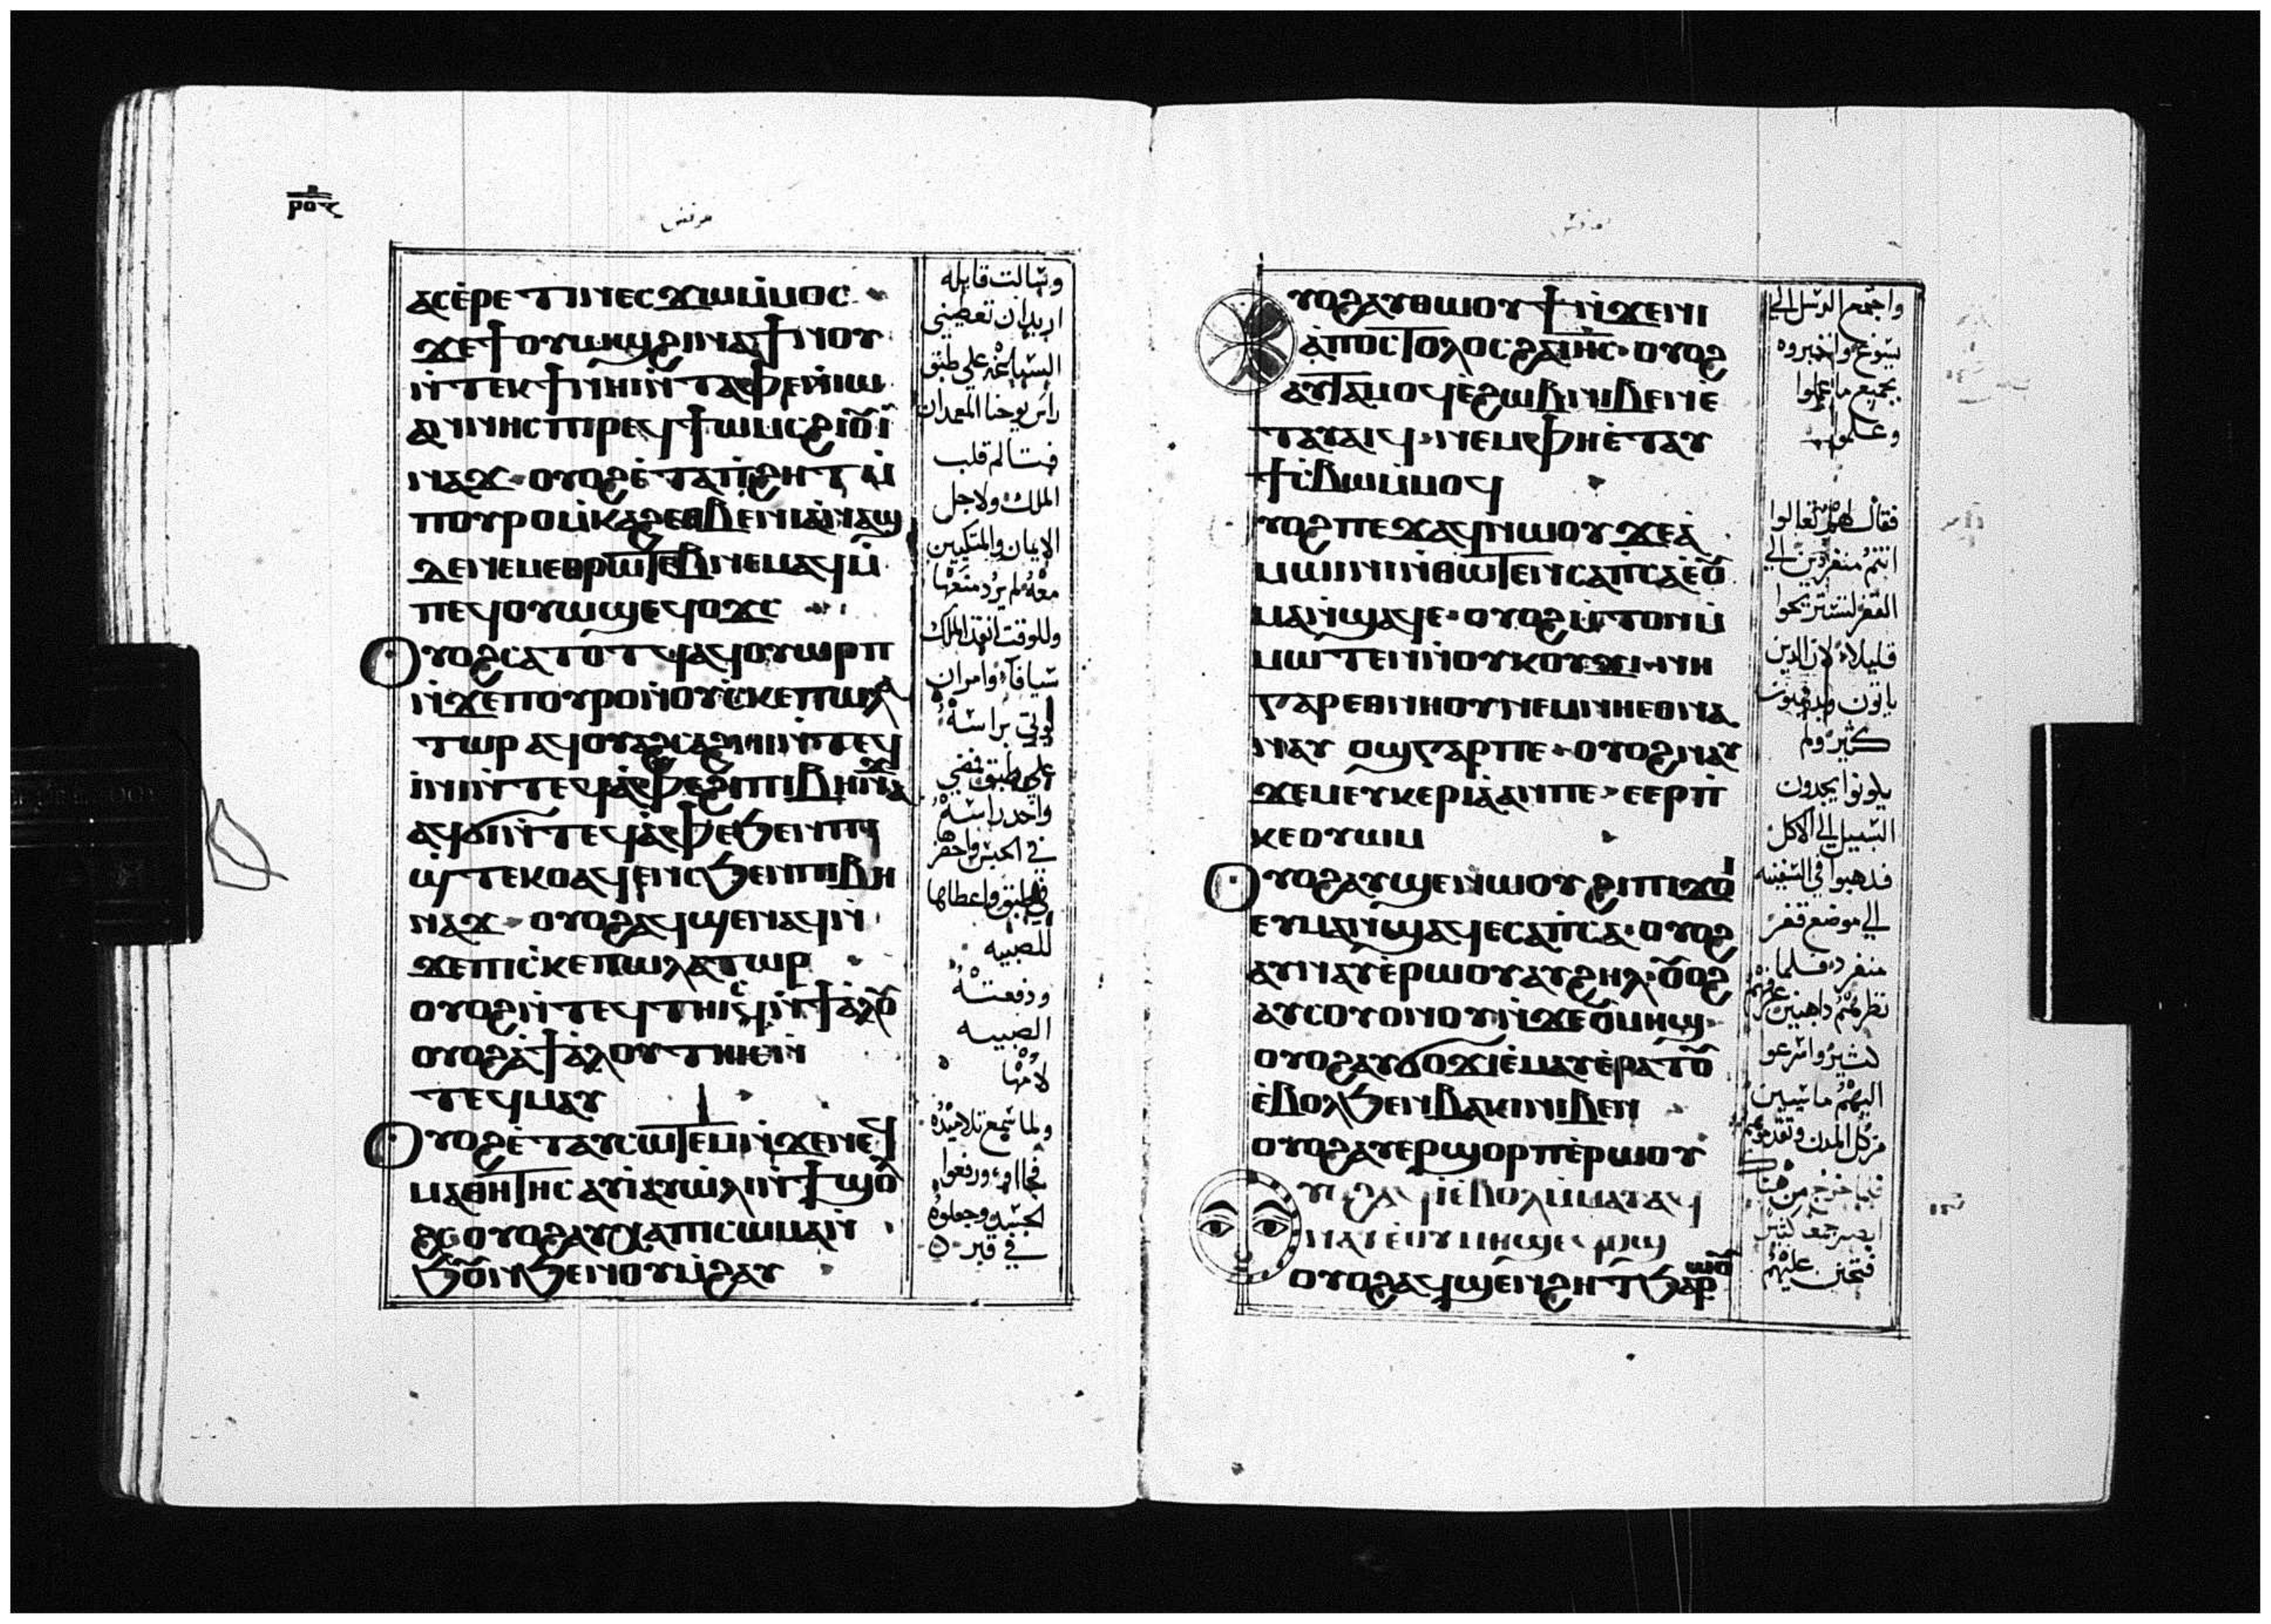 ⲣⲟⲋ
مرقس
ⲁⲥⲉ̀ⲣⲉⲧⲓⲛ ⲉⲥϫⲱⲙ̀ⲙⲟⲥ
ϫⲉϯⲟⲩⲱϣϩⲓⲛⲁ ϯⲛⲟⲩ
ⲛ̀ⲧⲉⲕϯⲛⲏⲓ ⲛ̀ⲧⲁⲫⲉ ⲛ̀ⲓⲱ
ⲁⲛⲛⲏⲥ ⲡⲓⲣⲉϥϯⲱⲙⲥ ϩⲓⲟ̅ⲓ̅
ⲛⲁϫ ⲟⲩⲟϩ ⲉ̀ⲧⲁⲡ̀ϩⲏⲧ ⲙ̀
ⲡⲟⲩⲣⲟ ⲙ̀ⲕⲁϩ ⲉⲑⲃⲉⲛⲓⲁⲛⲁϣ
ⲗⲉⲛⲉⲙⲉⲑⲣⲱⲧⲉⲃ ⲛⲉⲙⲁϥ ⲙ̀
ⲡⲉϥⲟⲩⲱϣ ⲉϥⲟϫⲥ
ⲟⲩⲟϩ ⲥⲁⲧⲟⲧϥ ⲁϥⲟⲩⲱⲣⲡ
ⲛ̀ϫⲉⲡⲟⲩⲣⲟ ⲛ̀ⲟⲩⲥ̀ⲕⲉⲡⲱⲗⲁ
ⲧⲱⲣ ⲁϥⲟⲩⲁϩⲥⲁϩⲛⲓ ⲛ̀ⲧⲉϥ
ⲓⲛⲓ ⲛ̀ⲧⲉϥⲁ̀ⲫⲉ ϩⲓ ⲡⲓⲃⲏⲛⲁϫ
ⲁϥϭⲓ ⲛ̀ⲧⲉϥⲁ̀ⲫⲉ ϧⲉⲛⲡⲓ
ϣ̀ⲧⲉⲕⲟ ⲁϥⲉⲛⲥ ϧⲉⲛⲡⲓⲃⲏ
ⲛⲁϫ ⲟⲩⲟϩ ⲁϥϣⲉⲛⲁϥ ⲛ̀
ϫⲉⲡⲓⲥ̀ⲕⲉⲡⲱⲗⲁⲧⲱⲣ
ⲟⲩⲟϩ ⲛ̀ⲧⲉϥⲧⲏⲓⲥ ⲛ̀ϯⲁ̀ⲗⲟ̅
ⲟⲩⲟϩ ⲁ̀ϯⲁ̀ⲗⲟⲩ ⲧⲏⲓⲥ ⲛ̀
ⲧⲉⲥⲙⲁⲩ
ⲟⲩⲟϩ ⲉ̀ⲧⲁⲩⲥⲱⲧⲉⲙ ⲛ̀ϫⲉⲛⲉϥ
ⲙⲁⲑⲏⲧⲏⲥ ⲁⲩⲓ̀ ⲁⲩⲱ̀ⲗⲓ ⲛ̀ϯϣⲟ̅
ϩⲥ ⲟⲩⲟϩ ⲁⲩⲭⲁ ⲡⲓⲥⲱⲙⲁ ⲛ̀
ϧⲟ̅ⲛ ϧⲉⲛⲟⲩⲙ̀ϩⲁⲩ
وسالت قايله
اريد ان تعطيني
الساعه علي طبق
راس يوحنا المعمدان
فتالم قلب
الملك ولاجل
الايمان والمتكيين
معه لم يرد منعها
وللوقت انفذ الملك
سيافا وامر ان
ياتي براسه
علي طبق فمضي
واخد راسه
في الحبس واحضر
في طبق واعطاها
للصبيه
ودفعته
الصبيه
لامها
ولما سمع تلاميذه
فجاوا ورفعوا
الجسد وجعلوه
في قبر
مرقس
ⲟⲩⲟϩ ⲁⲩⲑⲱⲟⲩϯ ⲛ̀ϫⲉⲛⲓ
ⲁ̀ⲡⲟⲥⲧⲟⲗⲟⲥ ϩⲁ ⲓⲏⲥ ⲟⲩⲟϩ
ⲁⲩⲧⲁⲙⲟϥ ⲉ̀ϩⲱⲃ ⲛⲓⲃⲉⲛ ⲉ̀
ⲧⲁⲩⲁⲓϥ ⲛⲉⲙ ⲫⲏ ⲉ̀ⲧⲁⲩ
ϯⲥⲃⲱ ⲙ̀ⲙⲟϥ
ⲟⲩⲟϩ ⲡⲉϫⲁϥ ⲛⲱⲟⲩ ϫⲉ ⲁ̀
ⲙⲱⲓⲛⲓ ⲛ̀ⲑⲱⲧⲉⲛ ⲥⲁⲡ̀ⲥⲁ ⲉ̀ⲟ̅
ⲙⲁ ⲛ̀ϣⲁϥⲉ ⲟⲩⲟϩ ⲙ̀ⲧⲟⲛ ⲙ̀
ⲙⲱⲧⲉⲛ ⲛ̀ⲟⲩⲕⲟⲩϫⲓ ⲛⲏ
ⲅⲁⲣ ⲉⲑⲛⲏⲟⲩ ⲛⲉⲙ ⲛⲏ ⲉⲑⲛⲁ
ⲛⲁⲩ ⲟϣ ⲅⲁⲣ ⲡⲉ ⲟⲩⲟϩ ⲛⲁⲩ
ϫⲉⲙ ⲉⲩⲕⲉⲣⲓⲁ ⲁⲛ ⲡⲉ ⲉⲉⲣⲡ̀
ⲕⲉⲟⲩⲱⲙ
ⲟⲩⲟϩ ⲁⲩϣⲉⲛⲱⲟⲩ ϩⲓ ⲡⲓϫⲟⲓ
ⲉⲩⲙⲁ ⲛ̀ϣⲁϥⲉ ⲥⲁⲡ̀ⲥⲁ ⲟⲩⲟϩ
ⲁⲩⲛⲁⲩ ⲉ̀ⲣⲱⲟⲩ ⲁⲩϩⲏⲗ ⲟ̅ⲟϩ
ⲁⲩⲥⲟⲩⲟⲛⲟⲩ ⲛ̀ϫⲉ ⲟ̅ⲙⲏϣ
ⲟⲩⲟϩ ⲁⲩϭⲟϫⲓ ⲉ̀ⲙⲁⲩ ⲉ̀ⲣⲁⲧⲟ̅
ⲉ̀ⲃⲟⲗ ϧⲉⲛ ⲃⲁⲕⲓ ⲛⲓⲃⲉⲛ
ⲟⲩⲟϩ ⲁⲩⲉⲣϣⲟⲣⲡ ⲉ̀ⲣⲱⲟⲩ
ⲟⲩⲟϩ ⲁϥⲓ̀ ⲉ̀ⲃⲟⲗ ⲙ̀ⲙⲁⲩ ⲁϥ
ⲛⲁⲩ ⲉ̀ⲟⲩⲙⲏϣ ⲉϥⲟϣ
ⲟⲩⲟϩ ⲁϥϣⲉⲛϩⲏⲧ ϧⲁⲣⲱⲟ̅
واجتمع الرسل الي
يسوع واخبروه
بجميع ما عملوا
وعلموا
فقال لهم تعالوا
انتم منفردين الي
القفر لتستريحوا
قليلا لان الدين
ياتون ويدهبون
كثير ولم
يكونوا يجدون
السبيل الي الاكل
فدهبوا في السفينه
الي موضع قفر
منفرد فلما
نظرتهم داهبين عرفهم
كثير واسرعو
اليهم ماشيين
من كل المدن وتقدموهم
فلما خرج من هناك
ابصر جمع كثير
فتحنن عليهم